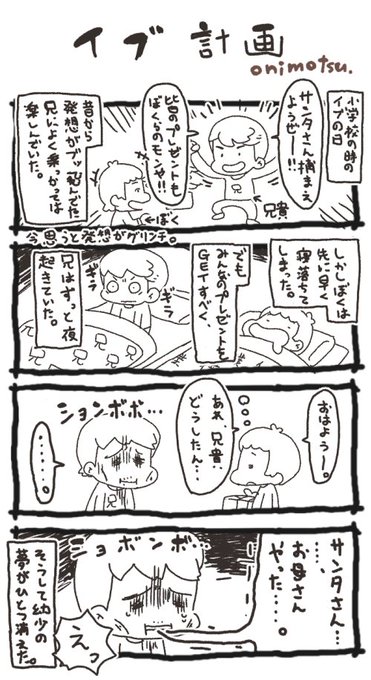 イブ計画
onimotsu.
小学校の時の
イブの日
サンタさん捕まえ
ようぜー!!
兄貴
皆のプレゼントも
ぼくらのモンや!!
ぼく
昔から
発想がブッ飛んでた
兄によく乗っかっては
楽しんでいた。
今思うと発想がグリンチ。
しかしぼくは
先に早く
寝落ちて
しまった。
でも
みんなのプレゼントを
GETすべく、
ギラ
ギラ
兄はずっと夜
起きていた。
おはようー。
あれ兄貴
どうしたん…
ションボボ…
・・・・・・。
サンタさん…
……
お母さん
やった…。
ショボンボ…
えっ
そうして幼少の
夢がひとつ消えた。